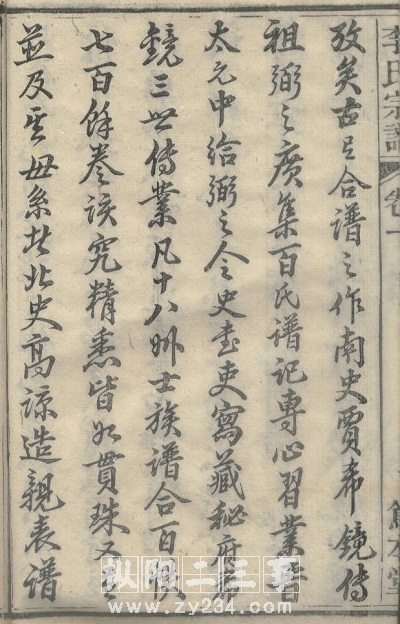 李氏宗譜 卷一 本堂
攷矣古合譜之作南史賈希鏡傳
祖弼之廣集百氏譜記專心習業晉
太元中給弼之令史書吏寫藏秘府希
鏡三世傳業凡十八州士族譜合百帙
七百餘卷該究精悉皆如貫珠又
並及其母系北史高諒造親表譜
枞阳二三子
www.zy234.com